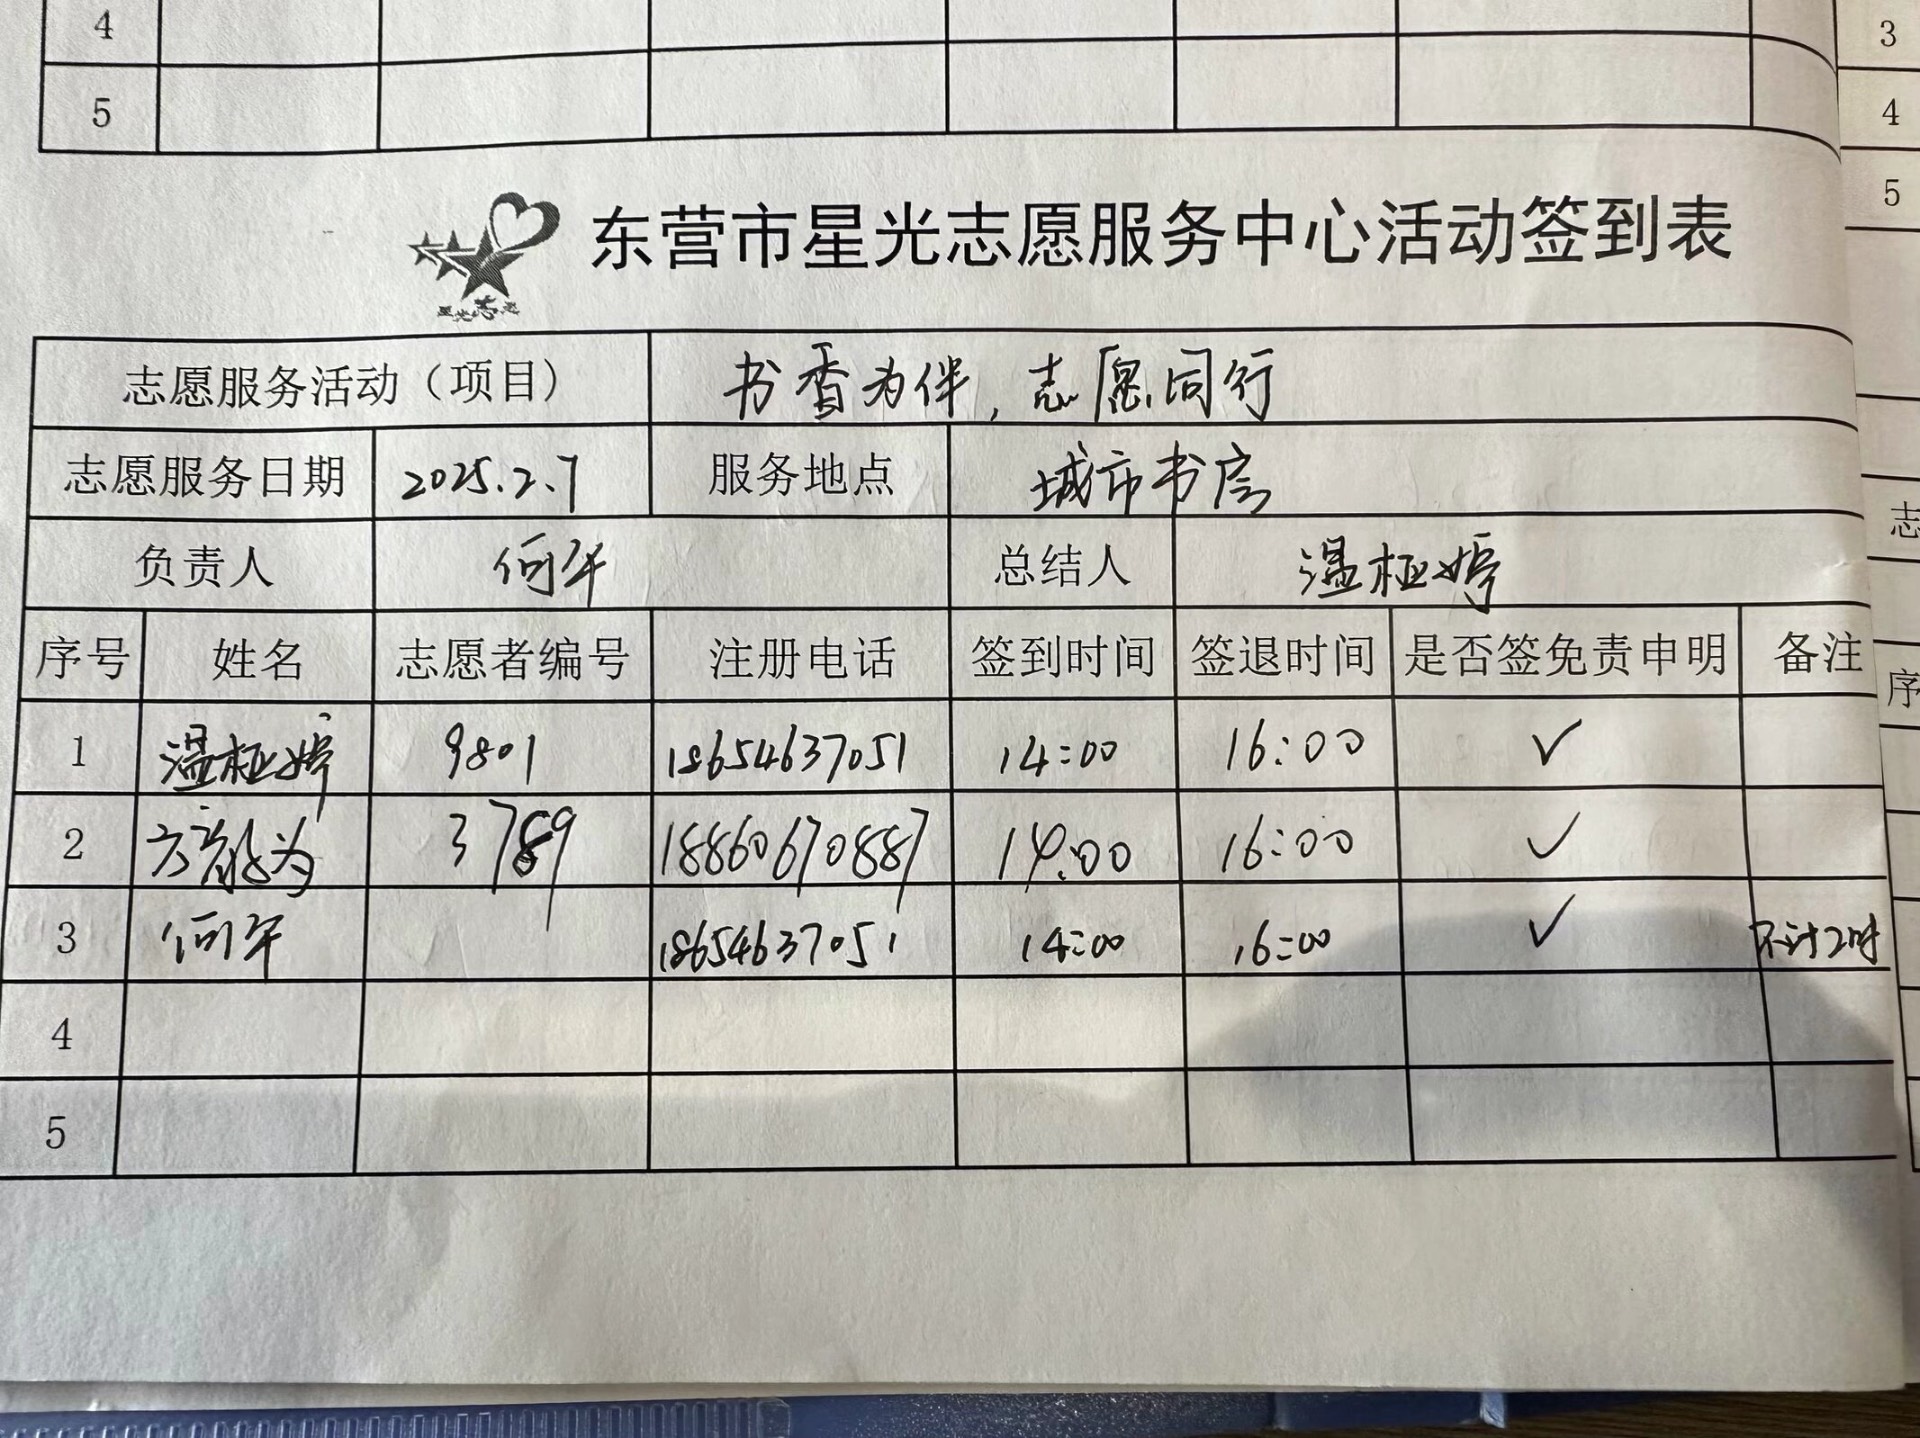 4
5
3
4
5
东营市星光志愿服务中心活动签到表
志愿服务活动（项目） 书香为伴，志愿同行
志愿服务日期 2025.2.7 服务地点 城市书房
负责人 何军 总结人 温桠婷
志
序号 姓名 志愿者编号 注册电话 签到时间 签退时间 是否签免责申明 备注
序
1 温桠婷 9801 18654637051 14:00 16:00 ✓
2 3789 18860670887 14:00 16:00 ✓
3 何军 18654637051 14:00 16:00 ✓ 不计2时
4
5